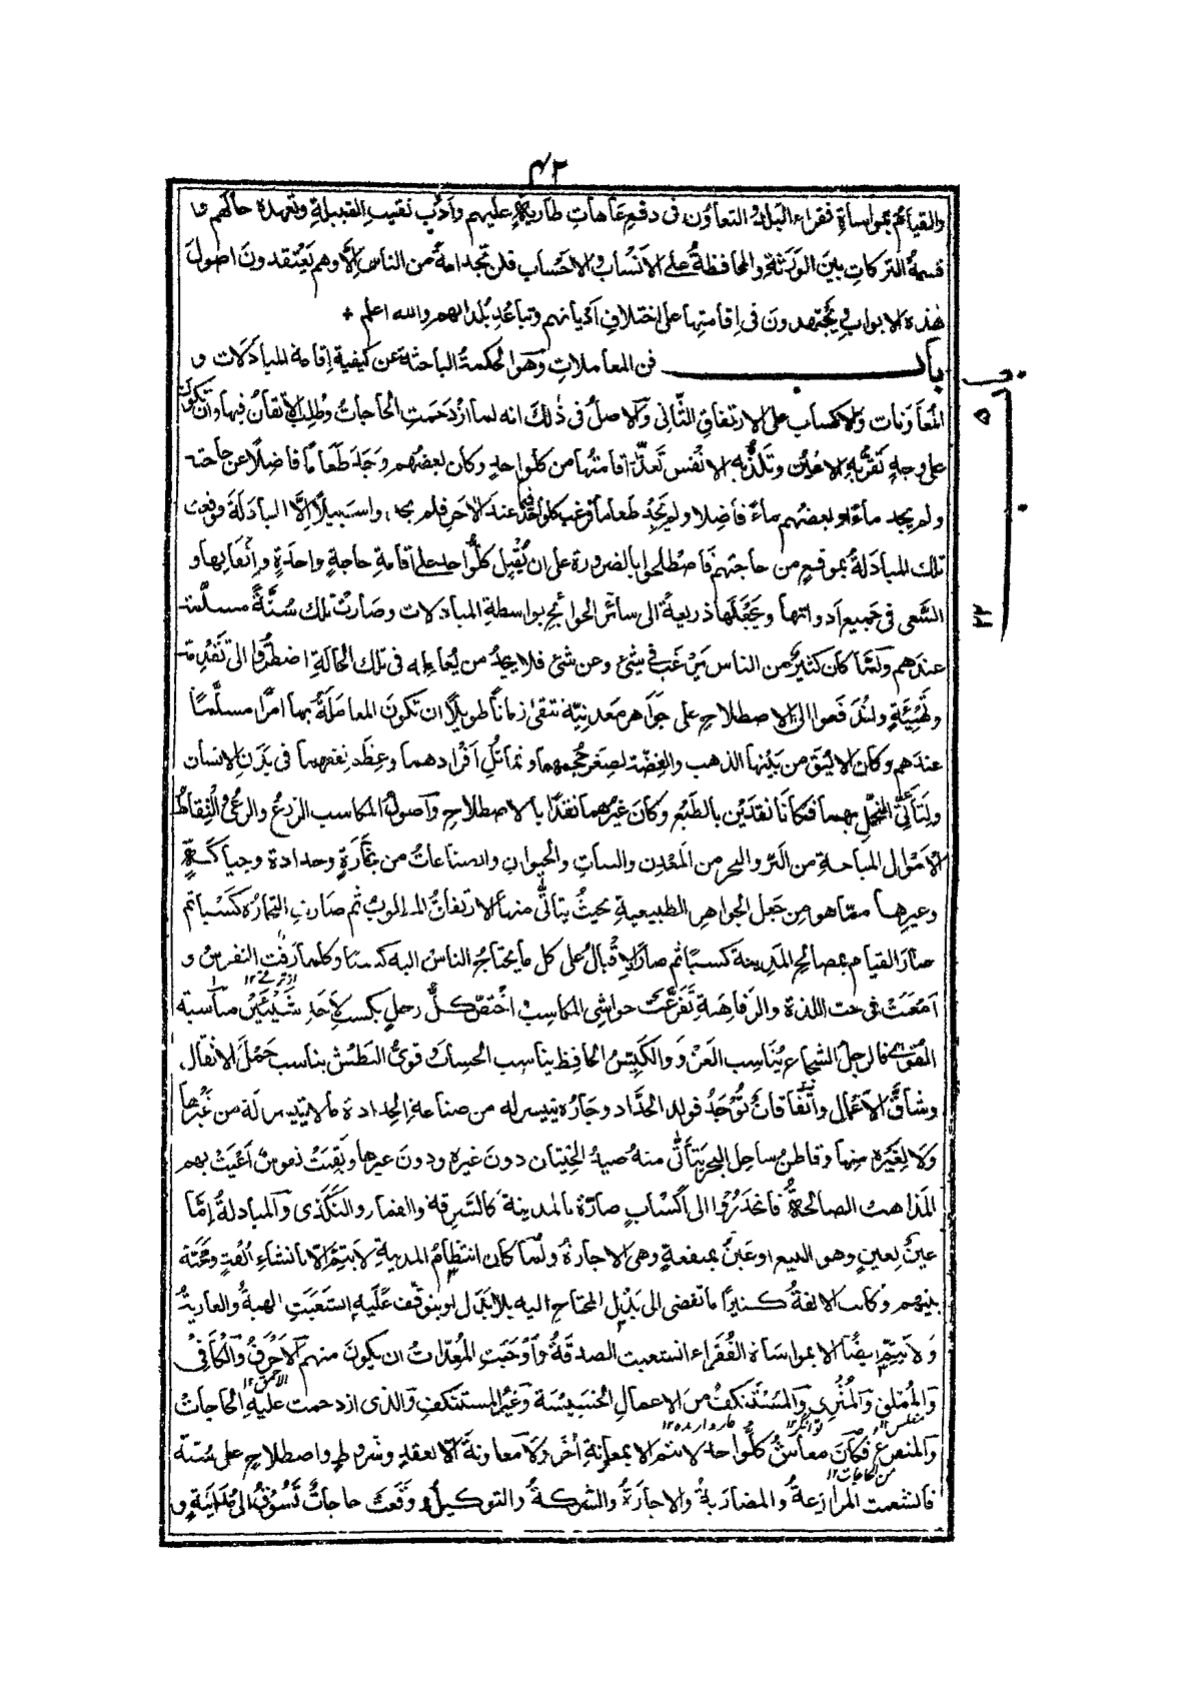 ٤٢
والقيام بمواساة فقراء البلد والتعاون فى دفع عاهات طارية عليهم وأدب نقيب القبيلة وتعهده حالهم و
قسمة التركات بين الورثة والمحافظة على الانساب والاحساب فلن تجد امة من الناس الا وهم يعتقدون اصول
هذه الابواب ويجتهدون فى اقامتها على اختلاف اديانهم وتباعد بلدانهم والله اعلم
باب فن المعاملات وهو الحكمة الباحثة عن كيفية اقامة المبادلات و
المعاونات والاكساب على الارتفاق الثانى والاصل فى ذلك انه لما ازدحمت الحاجات وطلب الاتقان فيها وان تكون
على وجه تقر به الاعين وتلذ به الانفس تعذر اقامتها من كل واحد وكان بعضهم وجد طعاما فاضلا عن حاجته
ولم يجد ماء وبعضهم ماء فاضلا ولم يجد طعاما فرغب كل واحد فيما عند الاخر فلم يجدوا سبيلا الا المبادلة فوقعت
تلك المبادلة بموقع من حاجتهم فاصطلحوا بالضرورة على ان يقبل كل واحد على اقامة حاجة واحدة واتقانها و
السعى فى جميع ادواتها ويجعلها ذريعة الى سائر الحوائج بواسطة المبادلات وصارت تلك سنة مسلمة
عندهم ولما كان كثير من الناس يرغب فى شئ وعن شئ فلا يجد من يعامله فى تلك الحالة اضطروا الى تقدمة
وتهيئة واندفعوا الى الاصطلاح على جواهر معدنية تبقى زمانا طويلا ان تكون المعاملة بها امرا مسلما
عندهم وكان الاليق من بينها الذهب والفضة لصغر حجمهما وتماثل افرادهما وعظم نفعهما فى بدن الانسان
ولتأتى التجمل بهما فكانا نقدين بالطبع وكان غيرهما نقدا بالاصطلاح واصول المكاسب الزرع والرعى والتقاط
الاموال المباحة من البر والبحر من المعدن والنبات والحيوان والصناعات من نجارة وحدادة وحياكة
وغيرها مما هو من جعل الجواهر الطبيعية بحيث يتأتى منها الارتفاق المطلوب ثم صارت التجارة كسبا ثم
صار القيام بمصالح المدينة كسبا ثم صار الاقبال على كل ما يحتاج الناس اليه كسبا وكلما رقت النفوس و
امعنت فى حب اللذة والرفاهية تفرعت حواشى المكاسب واختص كل رجل بكسب لاحد شيئين مناسبة
القوى فالرجل الشجاع يناسب الغزو والكيس الحافظ يناسب الحساب وقوى البطش يناسب حمل الاثقال
وشاق الاعمال واتفاقات توجد فولد الحداد وجاره يتيسر له من صناعة الحدادة ما لا يتيسر له من غيرها
ولا لغيره منها وقاطن ساحل البحر يتأتى منه صيد الحيتان دون غيره ودون غيرها وبقيت نفوس اعيت بهم
المذاهب الصالحة فانحدروا الى اكساب ضارة بالمدينة كالسرقة والقمار والتكدى والمبادلة اما
عين بعين وهو البيع او عين بمنفعة وهى الاجارة ولما كان انتظام المدينة لا يتم الا بانشاء الفة ومحبة
بينهم وكانت الالفة كثيرا ما تفضى الى بذل المحتاج اليه بلا بدل او تتوقف عليه انشعبت الهبة والعارية
ولا يتم ايضا الا بمواساة الفقراء انشعبت الصدقة واوجبت المعدات ان يكون منهم الاخرق والكافى
والمملق والمثرى والمستنكف من الاعمال الخسيسة وغير المستنكف والذى ازدحمت عليه الحاجات
والمتفرغ فكان معاش كل واحد لا يتم الا بمعاونة آخر ولا معاونة الا بعقد وشروط واصطلاح على سنة
فانشعبت المزارعة والمضاربة والاجارة والشركة والتوكيل ووقعت حاجات تسوق الى مداينة و